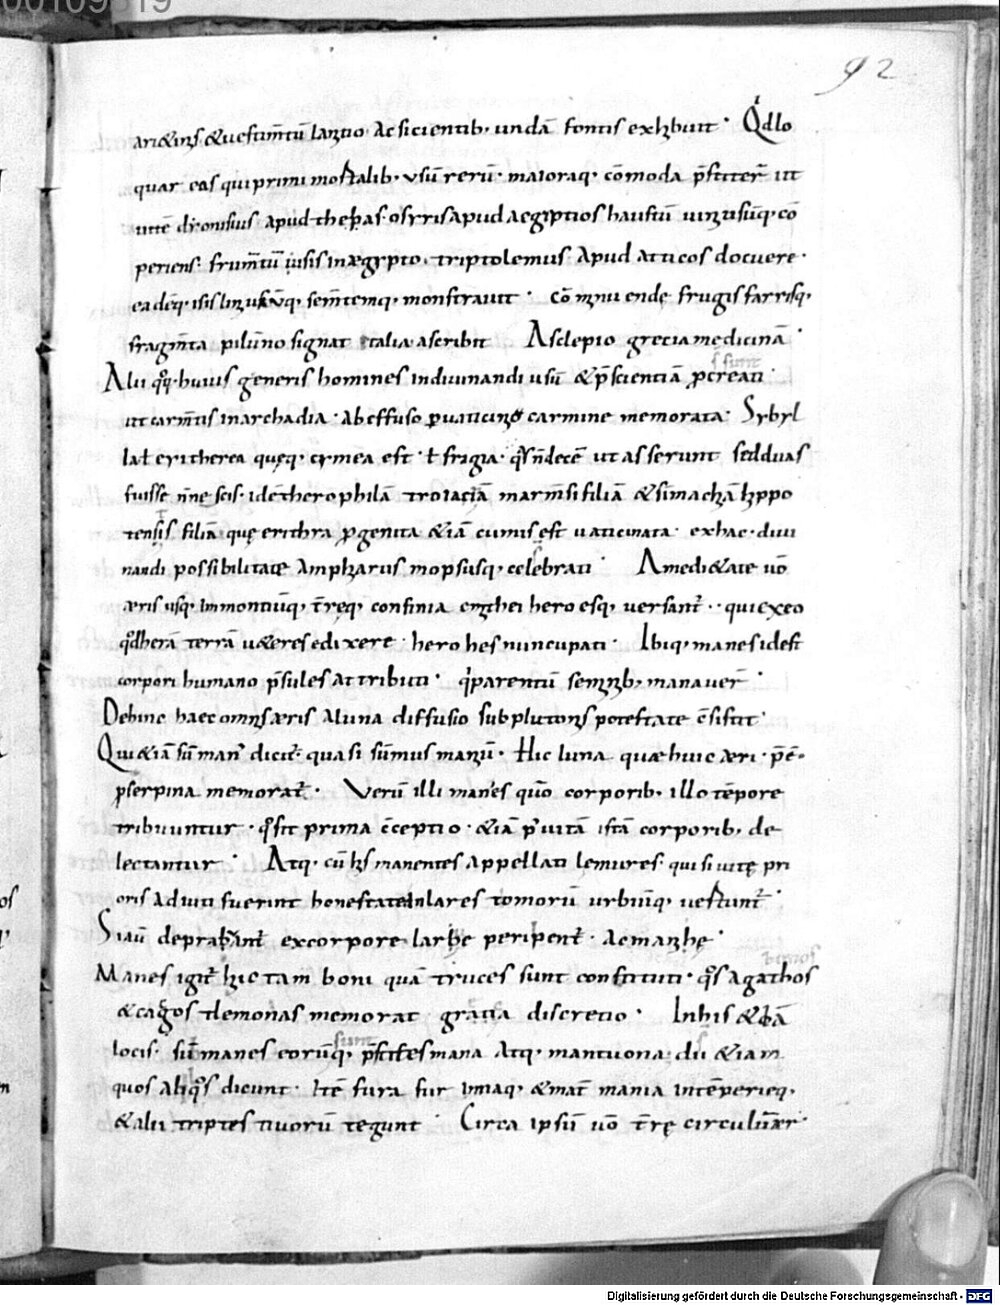 92
quar eas qui primi mortalib· usū rerū· maioraq· cōmoda p̄stiter̄ ut
ute dyonisius apud thebas· osyris apud aegyptios haustū uini usūq· cō
periens· frum̄tū isis in ægypto· triptolemus apud atticos docuere·
eadēq· isis lini usūq· sem̄temq· monstrauit· Cōminuendę frugis farrisq·
fragm̄ta pilūno signat italia ascribit Asclepio grecia medicinā·
sunt
Alii qq· huius generis homines in diuinandi usū & p̄scientiā pcreati·
ut carm̄tis in archadia· ab effuso p uaticinio carmine memorata· Sybyl
la ł eritherea quęq· cymea est· ł frigia· qs ñ decē ut asserunt sed duas
fuisse ñ nescis· idē therophilā troianā marm̄si filiā & simachā hyppo
tensis filiā quę erithra pgenita &iā cumis est uaticinata· ex hac· diui
nandi possibilitate Ampharus mopsusq· celebrati· A medi&ate uō
æris usq· in montiūq· t̄req· confinia emithei heroesq· uersant̄· qui ex eo
qd herā terrā u&eres edixere· herohes nuncupati· Ibiq· manes id est
corpori humano p̄sules attributi· qi parentū seminib· manauer̄·
Dehinc haec omnis æris aluna diffusio sub plutonis potestate c̄sistit·
Qui &iā sūman' dicit̄· quasi sūmus maniū· Hic luna quæ huic æri· p̄ē·
pserpina memorat̄· Verū illi manes qūo corporib· illo tēpore
tribuuntur· qo fit prima c̄ceptio· &iā p uitā istā corporib· de
lectantur· Atq· cū his manentes appellati lemures· qui si uitę pri
oris adiuti fuerint honestate in lares tomorū urbiūq· uertunt̄·
Si aū deprauant̄ ex corpore laruę perhibent̄· ac manię·
bonos
Manes igit̄ hic tam boni quā truces sunt constituti· qos agathos
& cacos demonas memorat gratia discretio· In his &iā
sum
locis· sūmanes eorūq· p̄stites mana Atq· mantuona· dii &iam
quos aliqos dicunt· Itē fura furinaq· & mat̄ mania intēperieq·
& alii triptes diuorū degunt Circa ipsū uō t̄rę circulū aer·
Digitalisierung gefördert durch die Deutsche Forschungsgemeinschaft - DFG